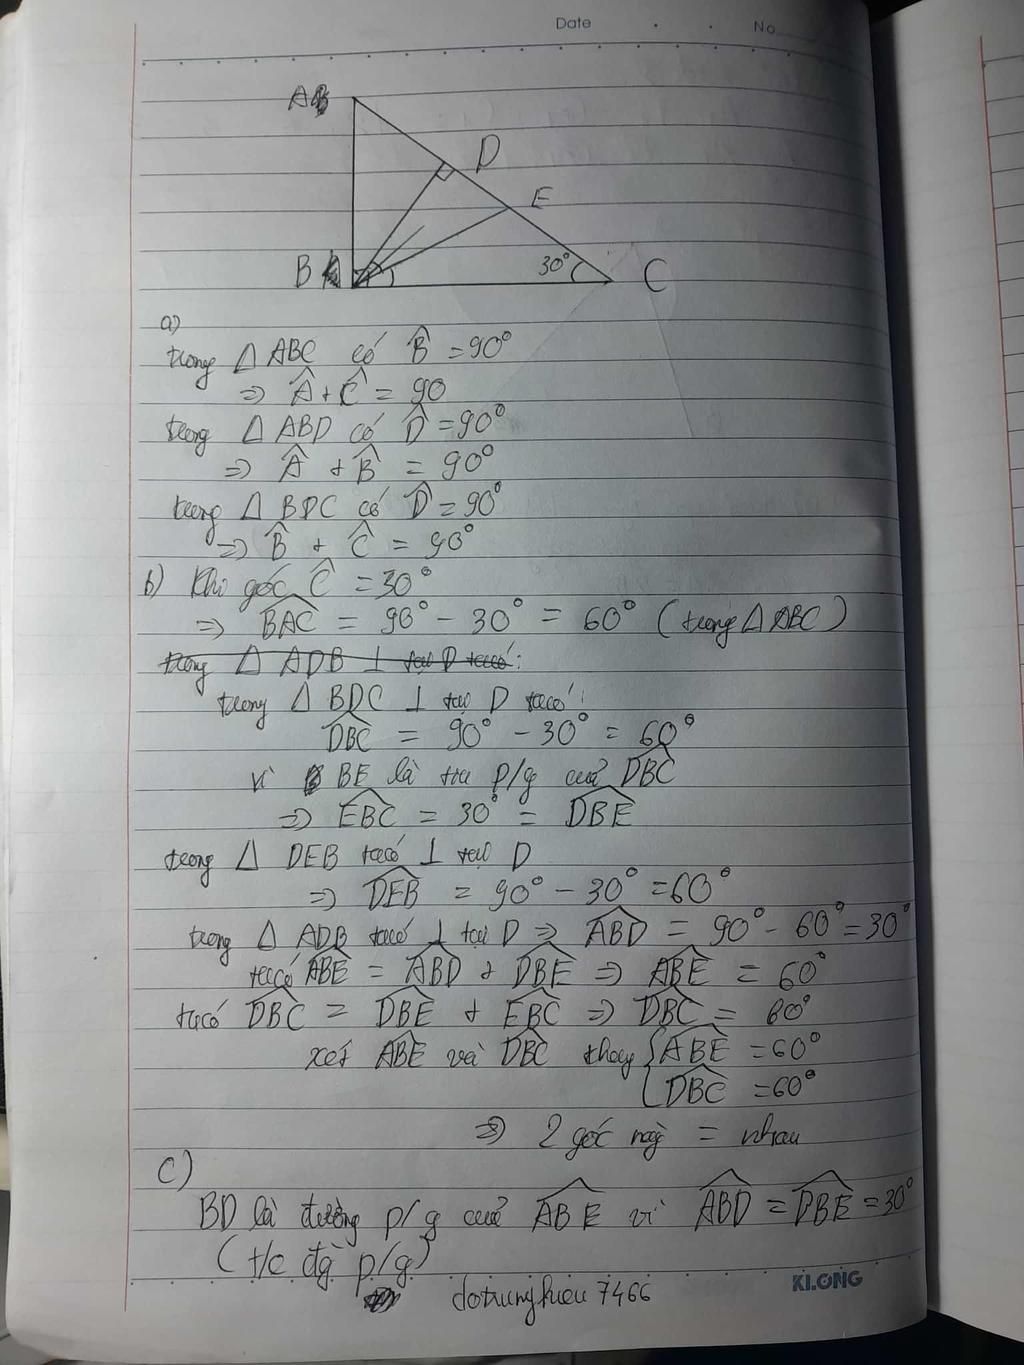 Date
No
A
D
E
B
30°
C
a)
trong △ ABC có B̂ = 90°
⇒ Â + Ĉ = 90
trong △ ABD có D̂ = 90°
⇒ Â + B̂ = 90°
trong △ BDC có D̂ = 90°
⇒ B̂ + Ĉ = 90°
b) Khi góc Ĉ = 30°
⇒ BAC = 90° - 30° = 60° (trong △ ABC)
trong △ ADB ⊥ tại D ta có:
trong △ BDC ⊥ tại D ta có:
DBC = 90° - 30° = 60°
vì BE là tia p/g của DBC
⇒ EBC = 30° = DBE
trong △ DEB ta có ⊥ tại D
⇒ DEB = 90° - 30° = 60°
trong △ ADB ta có ⊥ tại D ⇒ ABD = 90° - 60° = 30°
ta có ABE = ABD + DBE ⇒ ABE = 60°
ta có DBC = DBE + EBC ⇒ DBC = 60°
xét ABE và DBC thấy { ABE = 60°
DBC = 60°
⇒ 2 góc này = nhau
c)
BD là đường p/g của ABE vì ABD = DBE = 30°
(t/c đg p/g)
dotrunghieu 7466
KLONG